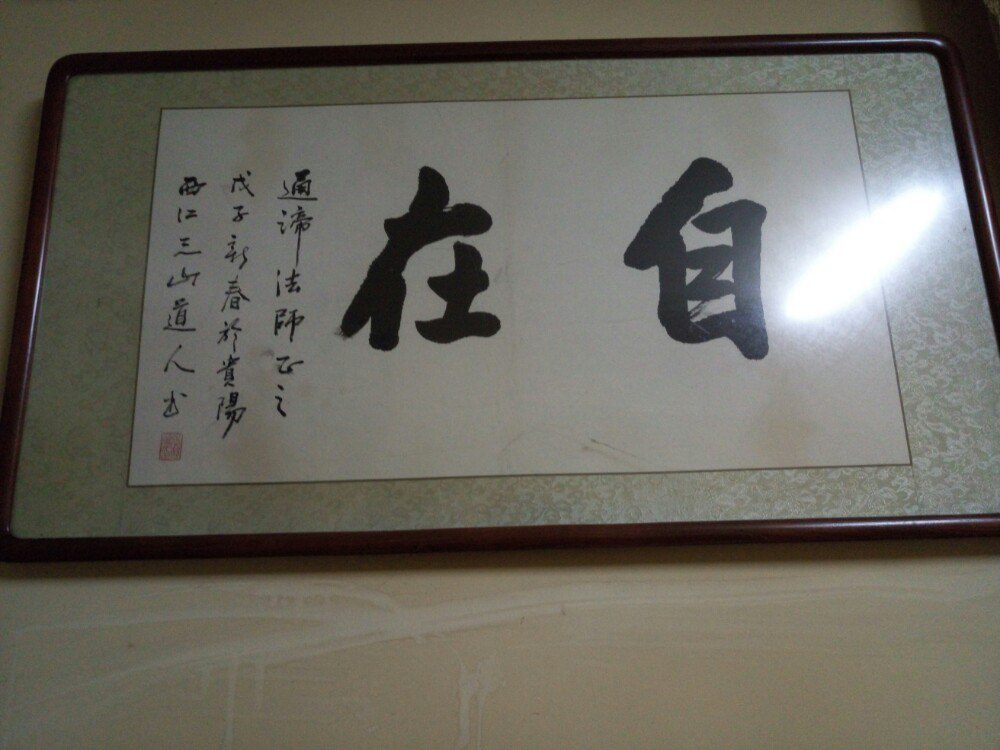 自在
通諦法師正之
戊子新春於貴陽
西江三山道人书